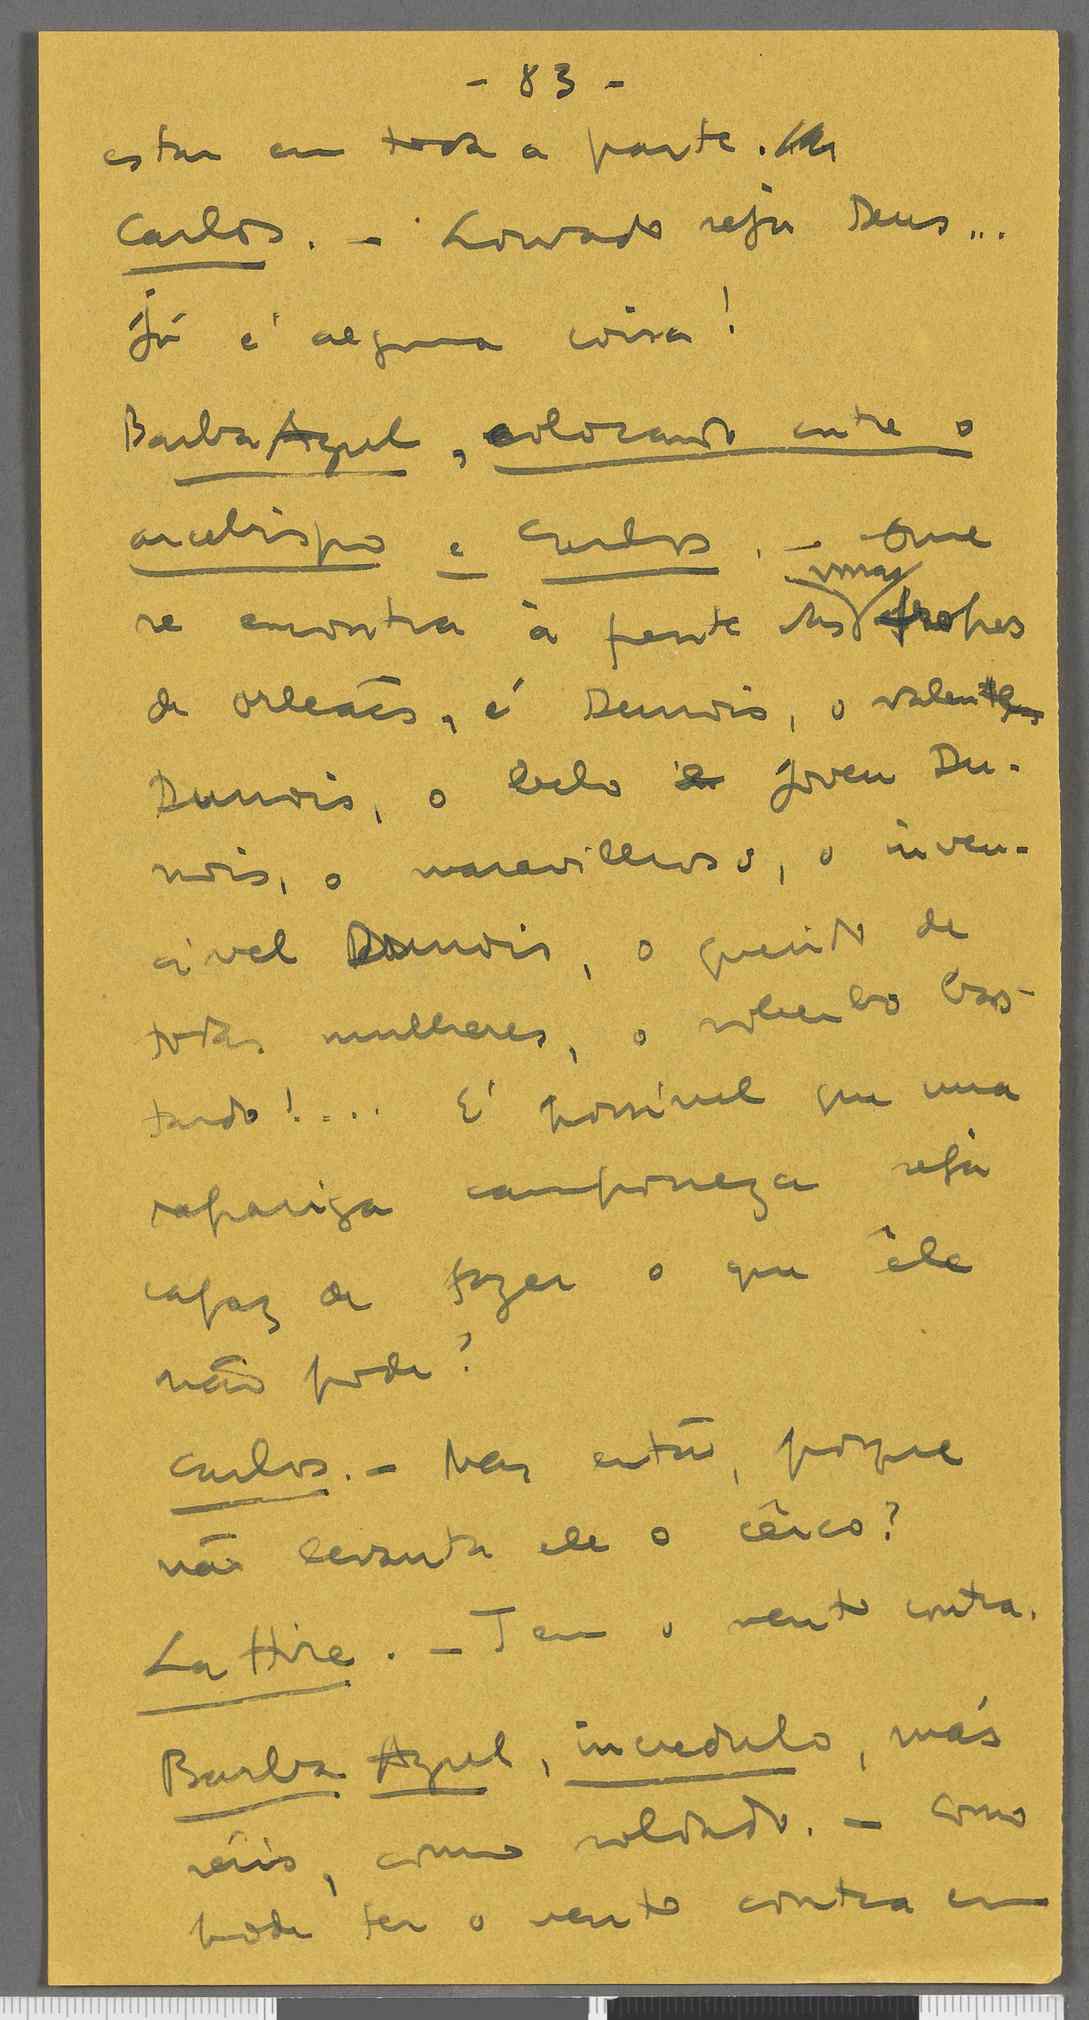 - 83 -
estar em toda a parte.
Carlos. - Louvado seja Deus...
Já é alguma coisa!
Barba Azul, colocando entre o
arcebispo e Carlos. - Que
se encontra à frente das
vossas tropas
de orleães, é Dunois, o valente
Dunois, o belo e joven Du-
nois, o maravilhoso, o inven-
civel Dunois, o querido de
todas mulheres, o soberbo bas-
tardo!.... E' possivel que uma
rapariga camponeza seja
capaz de fazer o que êle
não pode?
Carlos. - Mas então, porque
não levanta ele o cêrco?
La Hire. - Tem o vento contra.
Barba Azul, incredulo, más
sério, como soldado. - Como
pode ter o vento contra em